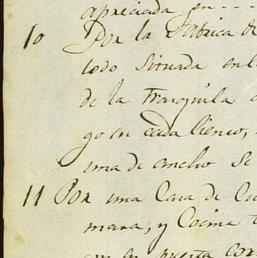 apreciada en - - -
10 Por la Fabrica de
todo Situada en l
de la Tranquila
go en cada lienzo,
una de ancho Se
11 Por una Casa de Cu
mara, y Cocina t
con su puerta cor